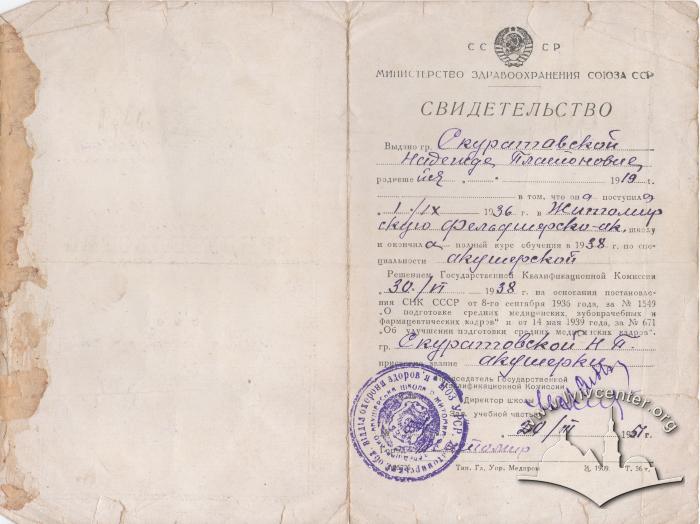 СС СР
МИНИСТЕРСТВО ЗДРАВООХРАНЕНИЯ СОЮЗА ССР
СВИДЕТЕЛЬСТВО
Выдано гр. Скуратавской
Надежде Платоновне,
родившейся 1919 г.
в том, что она поступила
1/IX 1936 г. в Житомир
скую фельдшерско-ак. школу
и окончила полный курс обучения в 1938 г. по спе-
циальности акушерской
Решением Государственной Квалификационной Комиссии
30/VI 1938 г. на основании постановле-
ния СНК СССР от 8-го сентября 1936 года, за № 1549
"О подготовке средних медицинских, зубоврачебных и
фармацевтических кадров" и от 14 мая 1939 года, за № 671
"Об улучшении подготовки средних медицинских кадров".
гр. Скуратовской Н. П.
присвоено звание акушерки
Председатель Государственной
Квалификационной Комиссии
Директор школы
учебной частью
30/III 1951 г.
Тип. Гл. Упр. Медпром
З. 1909. Т. 56 т.
МОЗ УРСР Житомирський обл. відділ охорони здоров'я
lvivcenter.org